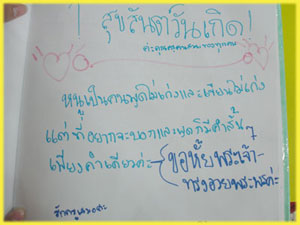 สุขสันต์วันเกิด!
หนูเป็นคนพูดไม่เก่งและเขียนไม่เก่ง
แต่ที่อยากจะบอกและพูดก็มีคำสั้น ๆ
เพียงคำเดียวค่ะ ขอให้พระเจ้า
ทรงอวยพระพรค่ะ